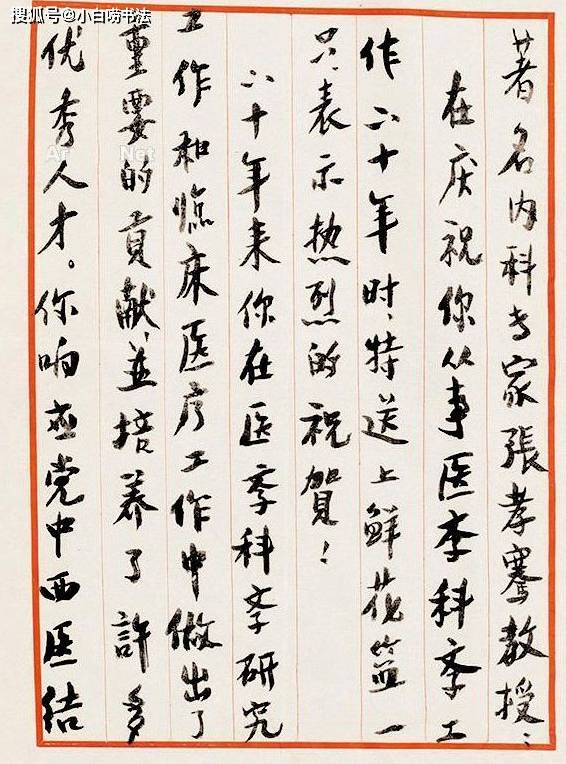 搜狐号@小白唠书法
著名内科专家張孝騫教授：
在庆祝你从事医学科学工
作六十年时，特送上鲜花篮一
只，表示热烈的祝賀！
六十年来你在医学科学研究
工作和临床医疗工作中做出了
重要的貢献，並培养了許多
优秀人才。你响应党中西医结